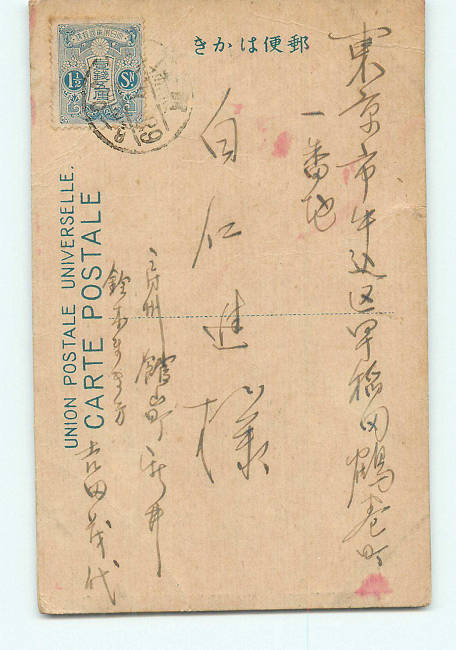 きかは便郵
東京市牛込区早稲田鶴巻町
一番地
白仁進様
房州館山町新井
鈴木方
吉田茂代
UNION POSTALE UNIVERSELLE.
CARTE POSTALE
1½
Sn